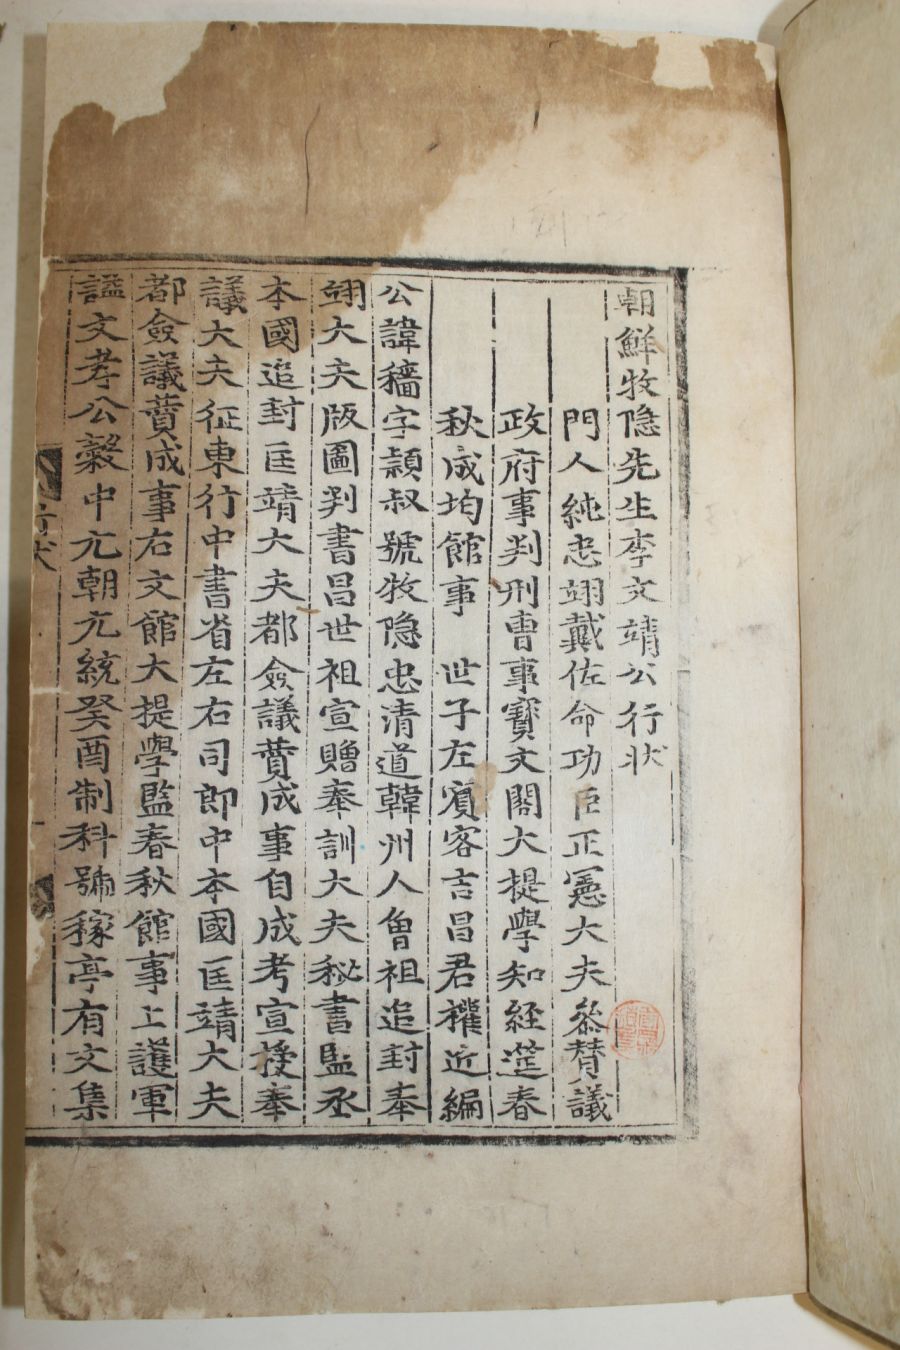 朝鮮牧隐先生李文靖公行狀
門人純忠翊戴佐命功臣正憲大夫叅賛議
政府事判刑曺事寳文閣大提學知経莚春
秋成均館事　世子左賔客吉昌君權近編
公諱穡字穎叔號牧隐忠清道韓州人曾祖追封奉
翊大夫版圖判書昌世祖宣贈奉訓大夫秘書監丞
本國追封匡靖大夫都僉議賛成事自成考宣授奉
議大夫征東行中書省左右司郎中本國匡靖大夫
都僉議賛成事右文館大提學監春秋館事上護軍
謚文孝公糓中元朝元統癸酉制科號稼亭有文集
行狀